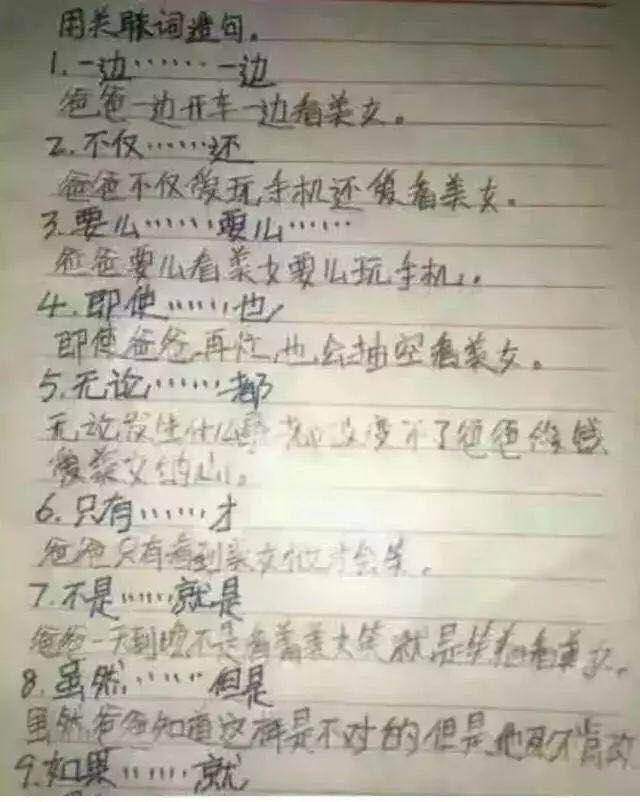 用关联词造句。
1.一边……一边
爸爸一边开车一边看美女。
2.不仅……还
爸爸不仅爱玩手机还爱看美女。
3.要么……要么……
爸爸要么看美女要么玩手机。
4.即使……也
即使爸爸再忙,也会抽空看美女。
5.无论……都
无论发生什么事都改变不了爸爸
爱美女的心。
6.只有……才
爸爸只有看到美女他才会笑。
7.不是……就是
爸爸一天到晚不是看着美女笑就是笑着看美女。
8.虽然……但是
虽然爸爸知道这样是不对的但是他死不肯改
9.如果……就